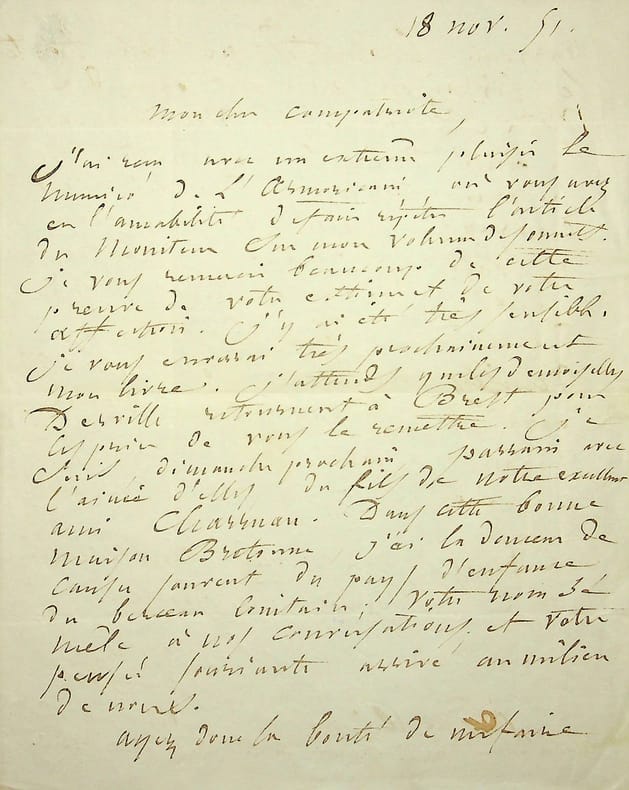 18 nov. 51.
mon cher compatriote,
J'ai reçu avec un extrême plaisir le
numéro de l'Armoricain où vous avez
eu l'amabilité de faire répéter l'article
du Moniteur sur mon volume de sonnets.
je vous remercie beaucoup de cette
preuve de votre estime et de votre
affection. j'y ai été très sensible.
je vous enverrai très prochainement
mon livre. j'attends que les demoiselles
Derville retournent à Brest pour
les prier de vous le remettre. je
suis dimanche prochain parrain avec
l'ainée d'elles du fils de notre excellent
ami. Dans cette bonne
maison Bretonne, j'ai la douceur de
causer souvent du pays d'enfance
du berceau lointain; votre nom se
mêle à nos conversations, et votre
pensée souriante arrive au milieu
de nous.
ayez donc la bonté de me faire